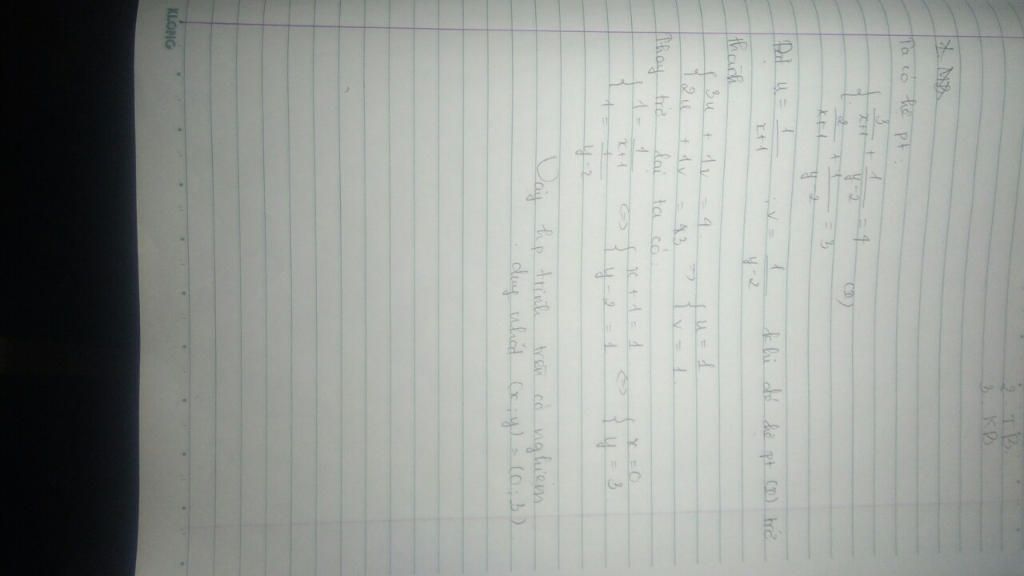 2 TB
3 KB
Ta có hệ pt:
{ 3/x+1 + 1/y-2 = 4
{ 2/x+1 + 1/y-2 = 3 (I)
Đặt u = 1/x+1 ; v = 1/y-2 khi đó hệ pt (I) trở
thành
{ 3u + 1v = 4
{ 2u + 1v = 3 => { u = 1
{ v = 1
Thay trở lại ta có:
{ 1 = 1/x+1
{ 1 = 1/y-2 <=> { x + 1 = 1
{ y - 2 = 1 <=> { x = 0
{ y = 3
Vậy hệ p trình trên có nghiệm
duy nhất (x; y) = (0; 3)
KLONG